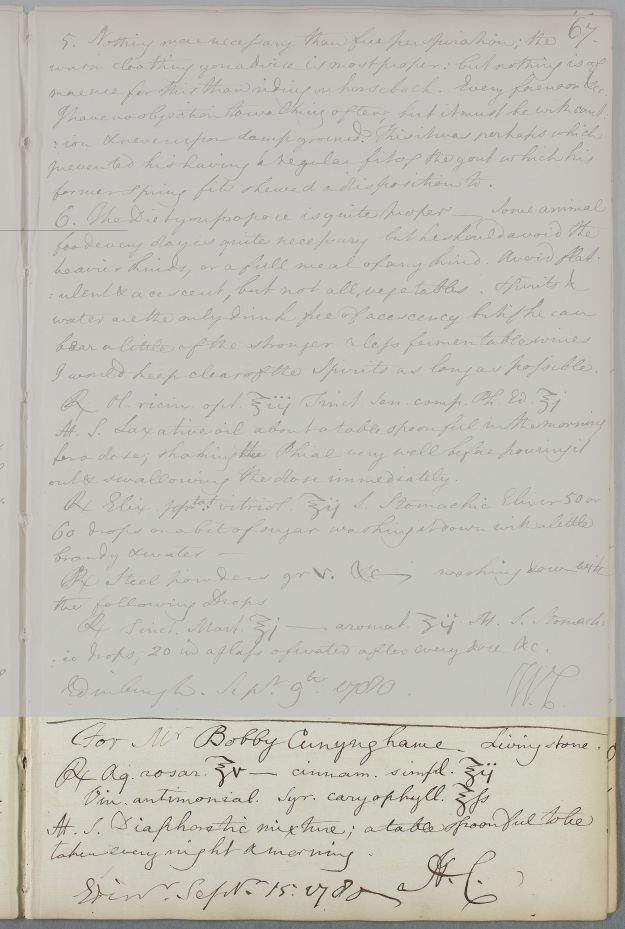 67.
5. Nothing more necessary than free perspiration; the
warm cloathing you advise is most proper: but nothing is of
more use for this than riding on horseback. Every forenoon &c.
I have no objection to walking often, but it must be with caut-
:ion & never upon damp ground. This it was perhaps which
prevented his having a regular fit of the gout which his
former Spring fits shewed a disposition to.
6. The Diet you propose is quite proper — Some animal
food every day is quite necessary but he should avoid the
heavier kinds, or a full meal of any kind. Avoid flat-
:ulent & acescent, but not all, vegetables. Spirits &
water are the only drink free of acescency but if he can
bear a little of the stronger & less fermentable wines
I would keep clear of the Spirits as long as possible.
℞ Ol. ricin. opt. ℥iij Tinct. Sen. comp. Ph. Ed. ℥j
M. S. Laxative oil about a table spoonful in the morning
for a dose; shaking the Phial very well before pouring it
out & swallowing the dose immediately.
℞ Elix. vitriol. ℥ij S. Stomachic Elixir 50 or
60 drops on a bit of sugar washing it down with a little
brandy & water —
℞ Steel powders gr v. &c — washing down with
the following Drops
℞ Tinct. Mart. ℥j — aromat. ℥ij. M. S. Stomach-
:ic drops, 20 in a glass of water after every dose &c.
Edinburgh. Sepr. 9th. 1780. W.C.
For Mr Bobby Cunynghame — Livingstone.
℞ Aq. rosar. ℥v — cinnam. simpl. ℥ij
Vin. antimonial. Syr. caryophyll. ℥ss
M. S. Diaphoretic mixture; a table spoonful to be
taken every night & morning.
Edinr. Sepr. 15. 1780 — W.C.